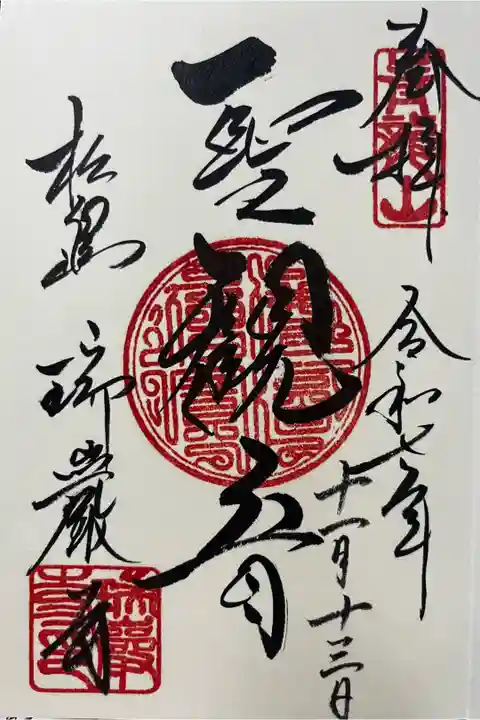 奉拝
青龍山
令和七年
十一月十三日
聖観音
松島
瑞巌寺